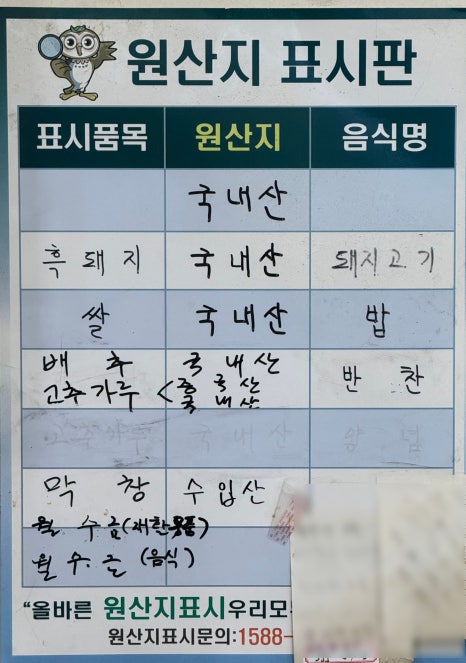 원산지 표시판
표시품목 원산지 음식명
국내산
흑돼지 국내산 돼지고기
쌀 국내산 밥
배추 국내산
고추가루 < 중국산 국내산 반찬
고추가루 국내산 양념
막창 수입산
월 수 금(재활용품)
월 수. 금 (음식)
"올바른 원산지표시 우리모
원산지표시문의:1588-